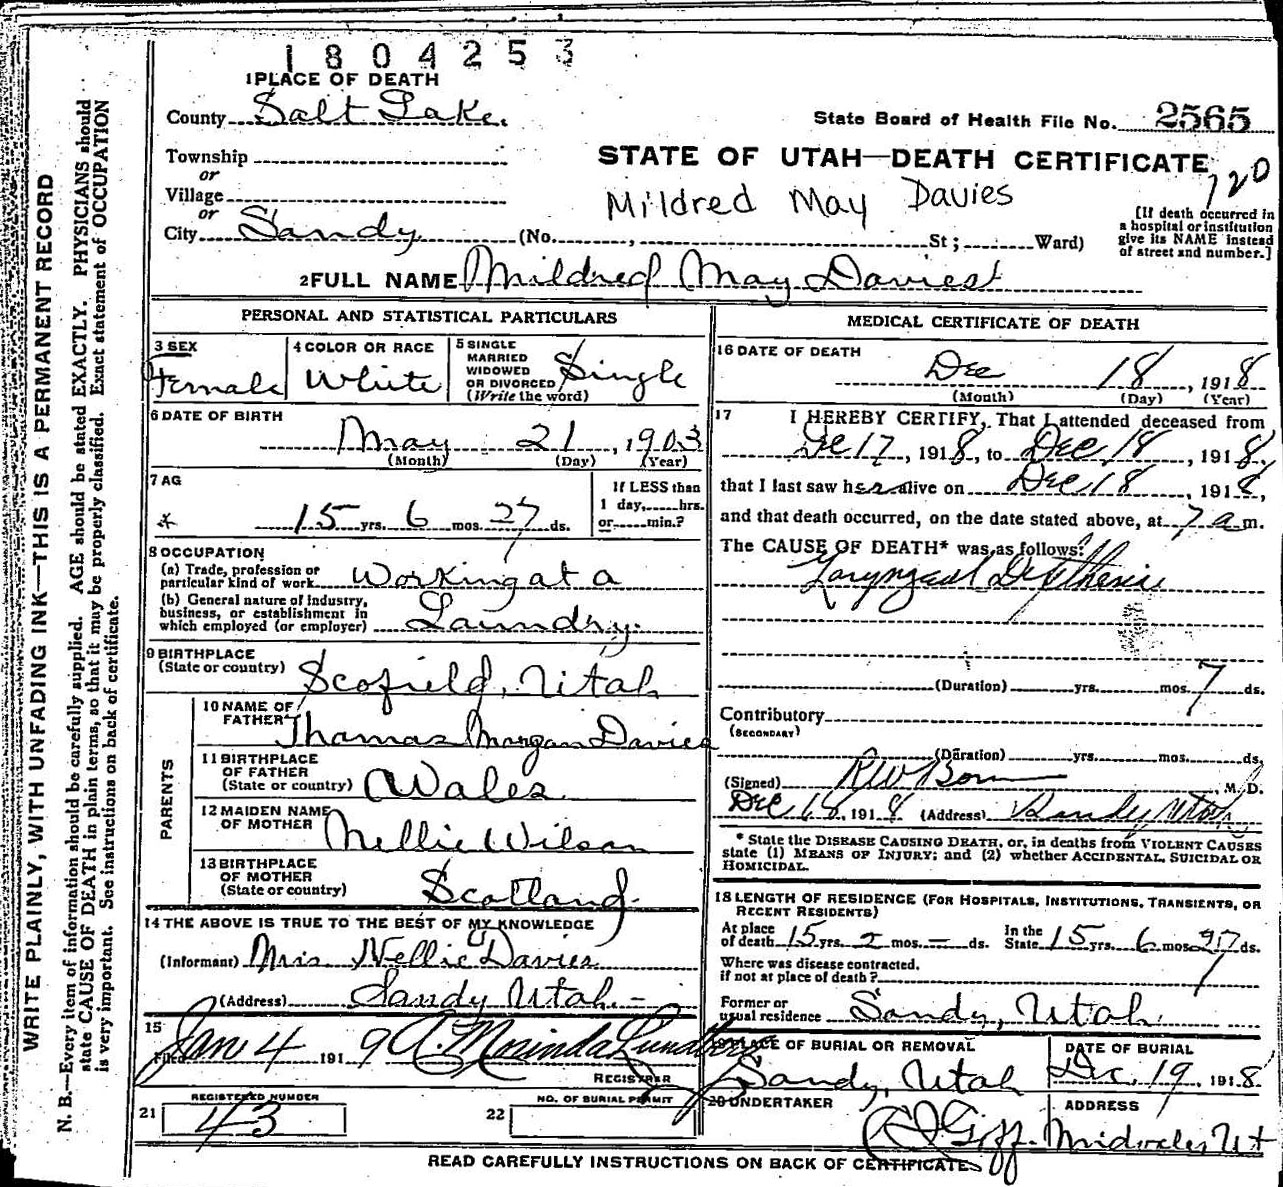 1804253
1 PLACE OF DEATH
County Salt Lake.
State Board of Health File No. 2565
Township
or
Village
or
City Sandy (No. , St; Ward)
STATE OF UTAH—DEATH CERTIFICATE
120
Mildred May Davies
[If death occurred in
a hospital or institution
give its NAME instead
of street and number.]
2 FULL NAME Mildred May Davies
WRITE PLAINLY, WITH UNFADING INK—THIS IS A PERMANENT RECORD
N. B.—Every item of information should be carefully supplied. AGE should be stated EXACTLY. PHYSICIANS should
state CAUSE OF DEATH in plain terms, so that it may be properly classified. Exact statement of OCCUPATION
is very important. See instructions on back of certificate.
PERSONAL AND STATISTICAL PARTICULARS
3 SEX
Female
4 COLOR OR RACE
White
5 SINGLE
MARRIED
WIDOWED
OR DIVORCED
(Write the word)
Single
6 DATE OF BIRTH
May 21, 1903
(Month) (Day) (Year)
7 AG
15 yrs. 6 mos. 27 ds.
If LESS than
1 day, hrs.
or min.?
8 OCCUPATION
(a) Trade, profession or
particular kind of work Working at a
(b) General nature of industry,
business, or establishment in
which employed (or employer) Laundry.
9 BIRTHPLACE
(State or country) Scofield, Utah
PARENTS
10 NAME OF
FATHER Thomas Morgan Davies
11 BIRTHPLACE
OF FATHER
(State or country) Wales
12 MAIDEN NAME
OF MOTHER Nellie Wilson
13 BIRTHPLACE
OF MOTHER
(State or country) Scotland.
14 THE ABOVE IS TRUE TO THE BEST OF MY KNOWLEDGE
(Informant) Mrs Nellie Davies
(Address) Sandy Utah.-
15
Filed Jan 4 1919 A. Morinda Lundberg
REGISTRAR
21 REGISTERED NUMBER
43
22 NO. OF BURIAL PERMIT
MEDICAL CERTIFICATE OF DEATH
16 DATE OF DEATH
Dec 18, 1918
(Month) (Day) (Year)
17 I HEREBY CERTIFY, That I attended deceased from
Dec 17, 1918, to Dec 18, 1918,
that I last saw her alive on Dec 18, 1918,
and that death occurred, on the date stated above, at 7 a m.
The CAUSE OF DEATH* was as follows:
Laryngeal Diptheria
(Duration) yrs. mos. 7 ds.
Contributory
(SECONDARY)
(Duration) yrs. mos. ds.
(Signed) , M. D.
Dec 18 1918 (Address) Sandy, Utah
* State the DISEASE CAUSING DEATH, or, in deaths from VIOLENT CAUSES
state (1) MEANS OF INJURY; and (2) whether ACCIDENTAL, SUICIDAL OR
HOMICIDAL.
18 LENGTH OF RESIDENCE (FOR HOSPITALS, INSTITUTIONS, TRANSIENTS, OR
RECENT RESIDENTS)
At place
of death 15 yrs. 2 mos. – ds.
In the
State 15 yrs. 6 mos. 27 ds.
Where was disease contracted.
if not at place of death?
Former or
usual residence Sandy, Utah
19 PLACE OF BURIAL OR REMOVAL
Sandy, Utah
DATE OF BURIAL
Dec. 19, 1918
20 UNDERTAKER
Goff.
ADDRESS
Midvale, Ut
READ CAREFULLY INSTRUCTIONS ON BACK OF CERTIFICATE